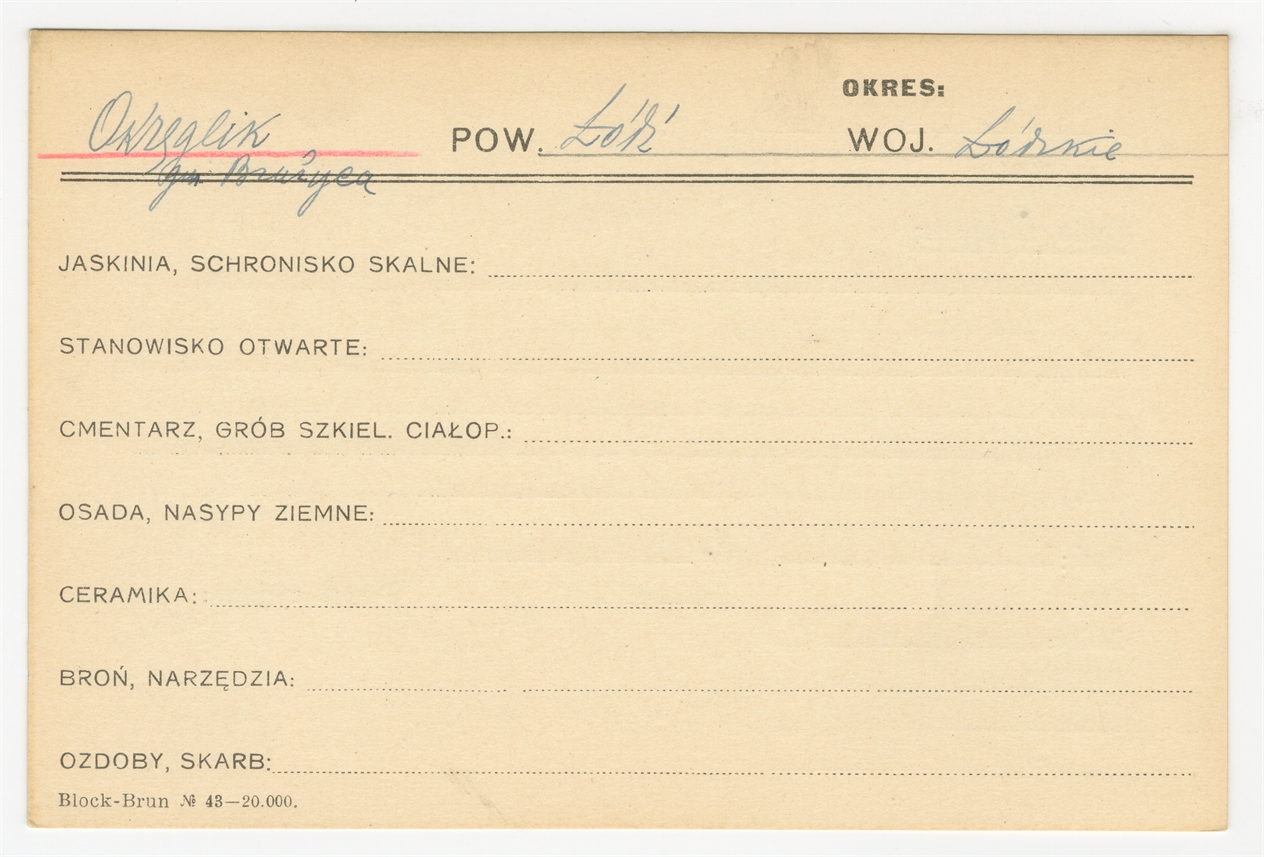 OKRES:
Okręglik POW. Łódź WOJ. Łódzkie
gm Brużyca
JASKINIA, SCHRONISKO SKALNE:
STANOWISKO OTWARTE:
CMENTARZ, GRÓB SZKIEL. CIAŁOP.:
OSADA, NASYPY ZIEMNE:
CERAMIKA:
BROŃ, NARZĘDZIA:
OZDOBY, SKARB:
Block-Brun № 43—20.000.